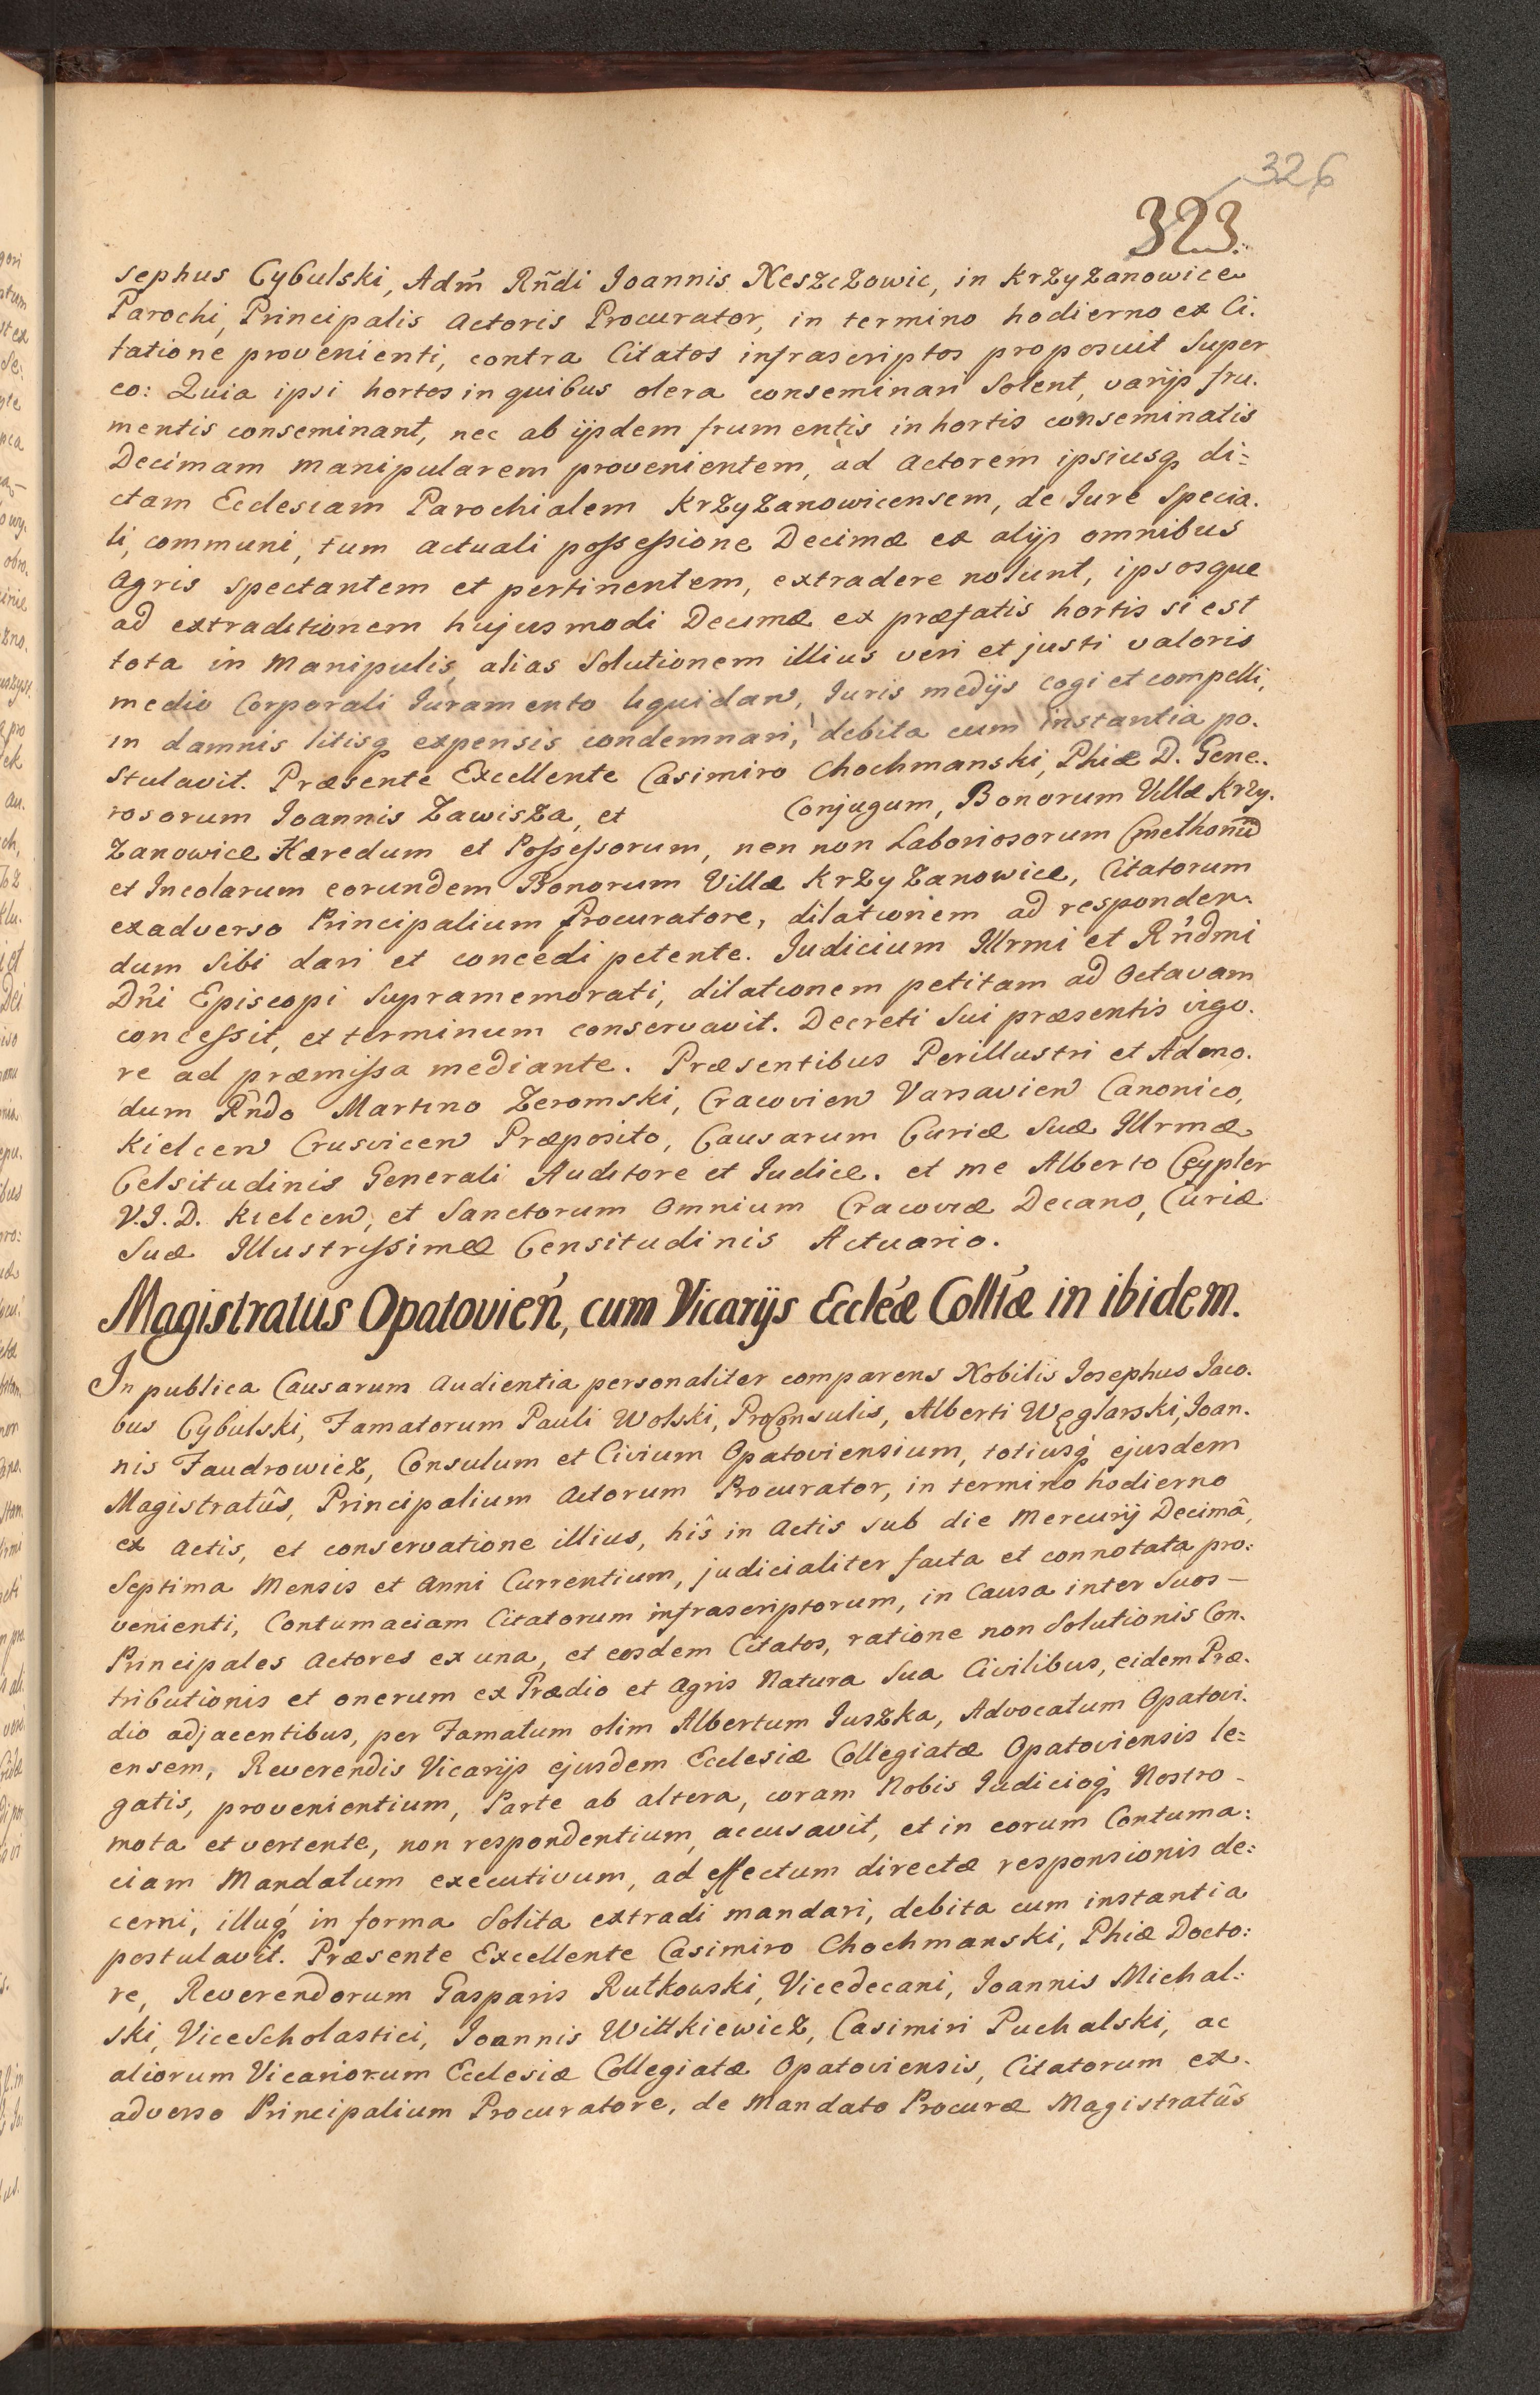 326
323.
sephus Cybulski, Adm̃ Rñdi Ioannis Neszczowic, in Krzyzanowice
Parochi, Principalis Actoris Procurator, in termino hodierno ex Ci.
tatione provenienti, contra Citatos infrascriptos proposuit super
eo: Quia ipsi hortos in quibus olera conseminari solent, varijs fru.
mentis conseminant, nec ab ijsdem frumentis in hortis conseminatis
Decimam manipularem provenientem, ad Actorem ipsiusq di=
ctam Ecclesiam Parochialem Krzyzanowicensem, de Iure Specia.
li, communi, tum actuali possessione Decimæ ex alijs omnibus
Agris spectantem et pertinentem, extradere nolunt, ipsosque
ad extraditionem hujusmodi Decimæ ex præfatis hortis si est
tota in Manipulis, alias Solutionem illius veri et justi valoris
medio Corporali Iuramento liquidan, Iuris medijs cogi et compelli,
in damnis litisq expensis condemnari, debita cum instantia po.
stulavit. Præsente Excellente Casimiro Chochmanski, Phiæ D. Gene.
rosorum Ioannis Zawisza, et Conjugum, Bonorum Villæ Krzy.
zanowice Hæredum et Possessorum, nen non Laboriosorum Cmethonũ
et Incolarum eorundem Bonorum Villæ Krzyzanowice, Citatorum
exadverso Principalium Procuratore, dilationem ad responden.
dum sibi dari et concedi petente. Iudicium Illrmi et Rñdmi
Dñi Episcopi supramemorati, dilationem petitam ad Octavam
concessit, et terminum conservavit. Decreti sui præsentis vigo.
re ad præmissa mediante. Præsentibus Perillustri et Admo.
dum Rñdo Martino Zeromski, Cracovien Varsavien Canonico,
Kielcen Crusvicen Præposito, Causarum Curiæ Suæ Illrmæ
Celsitudinis Generali Auditore et Iudice. et me Alberto Cypler
V.I.D. Kielcen, et Sanctorum Omnium Cracoviæ Decano, Curiæ
Suæ Illustrissimæ Censitudinis Actuario.
Magistratus Opatovień, cum Vicarijs Eccléæ Colltæ in ibidem.
In publica Causarum Audientia personaliter comparens Nobilis Iosephus Iaco.
bus Cybulski, Famatorum Pauli Wolski, ProConsulis, Alberti Węglarski, Ioan.
nis Faudrowicz, Consulum et Civium Opatoviensium, totiusq ejusdem
Magistratûs, Principalium Actorum Procurator, in termino hodierno
ex Actis, et conservatione illius, hîs in Actis sub die Mercurij Decimâ,
Septima Mensis et Anni Currentium, judicialiter facta et connotata pro:
venienti, Contumaciam Citatorum infrascriptorum, in Causa inter Suos
Principales Actores ex una, et eosdem Citatos, ratione non Solutionis Con.
tributionis et onerum ex Prædio et Agris Natura Sua Civilibus, eidem Præ.
dio adjacentibus, per Famatum olim Albertum Iuszka, Advocatum Opatovi.
ensem, Reverendis Vicarijs ejusdem Ecclesiæ Collegiatæ Opatoviensis le=
gatis, provenientium, Parte ab altera, coram Nobis Iudicioq Nostro
mota et vertente, non respondentium, accusavit, et in eorum Contuma:
ciam Mandatum executivum, ad effectum directæ responsionis de:
cerni, illuq in forma Solita extradi mandari, debita cum instantia
postulavit. Præsente Excellente Casimiro Chochmanski, Phiæ Docto:
re, Reverendorum Gasparis Rutkowski, Vicedecani, Ioannis Michal:
ski, ViceScholastici, Ioannis Wittkiewicz, Casimiri Puchalski, ac
aliorum Vicariorum Ecclesiæ Collegiatæ Opatoviensis, Citatorum ex.
adverso Principalium Procuratore, de Mandato Procuræ Magistratûs